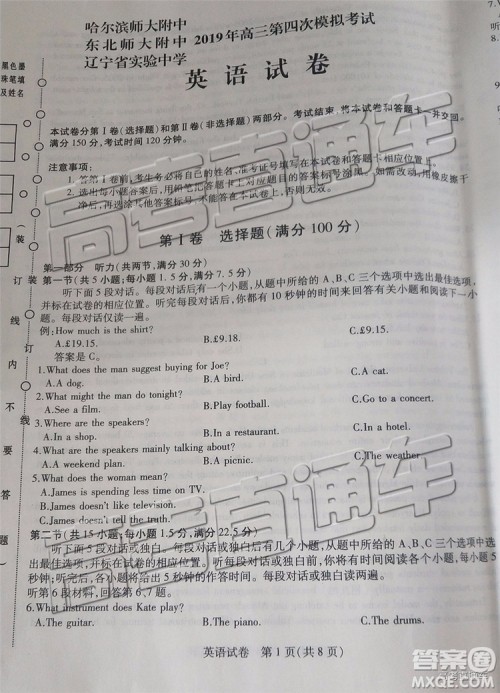 哈尔滨师大附中
东北师大附中 2019年高三第四次模拟考试
辽宁省实验中学
英语试卷
本试卷分第Ⅰ卷(选择题)和第Ⅱ卷(非选择题)两部分。考试结束,将本试卷和答题卡一并交回。
满分150分,考试时间120分钟。
注意事项:
1. 答第Ⅰ卷前,考生务必将自己的姓名、准考证号填写在本试卷和答题卡相应位置上。
2. 选出每小题答案后,用铅笔把答题卡上对应题目的答案标号涂黑,如需改动,用橡皮擦干
净后,再选涂其他答案标号。写在本试卷上无效。
第Ⅰ卷 选择题(满分100分)
第一部分 听力(共两节,满分30分)
第一节(共5小题;每小题1.5分,满分7.5分)
听下面5段对话。每段对话后有一个小题,从题中所给的A、B、C三个选项中选出最佳选项,
并标在试卷的相应位置。听完每段对话后,你都有10秒钟的时间来回答有关小题和阅读下一小
题。每段对话仅读一遍。
例:How much is the shirt?
A.£19.15. B.£9.18. C.£9.15.
答案是C。
1.What does the man suggest buying for Joe?
A.A dog. B.A bird. C.A cat.
2.What might the man do tonight?
A.See a film. B.Play football. C.Go to a concert.
3.Where are the speakers?
A.In a store. B.In a restaurant. C.In a hotel.
4.What are the speakers mainly talking about?
A.The weather. B.A picnic. C.The event.
5.What does the woman mean?
A.James is spending less time on TV.
B.James doesn't like television.
C.James doesn't tell the truth.
第二节(共15小题;每小题1.5分,满分22.5分)
听下面5段对话或独白。每段对话或独白后有几个小题,从题中所给的A、B、C三个选项中选
出最佳选项,并标在试卷的相应位置。听每段对话或独白前,你将有时间阅读各个小题,每小题5
秒钟;听完后,各小题将给出5秒钟的作答时间。每段对话或独白读两遍。
听第6段材料,回答第6、7题。
6.What instrument does Kate play?
A.The guitar. B.The piano. C.The drums.
英语试卷 第1页(共8页)
黑色墨
珠笔填
及姓名
装
订
线
内
不
要
答
题
装
订
线
高考直通车
高考直通车
答案圈
MXQE.COM